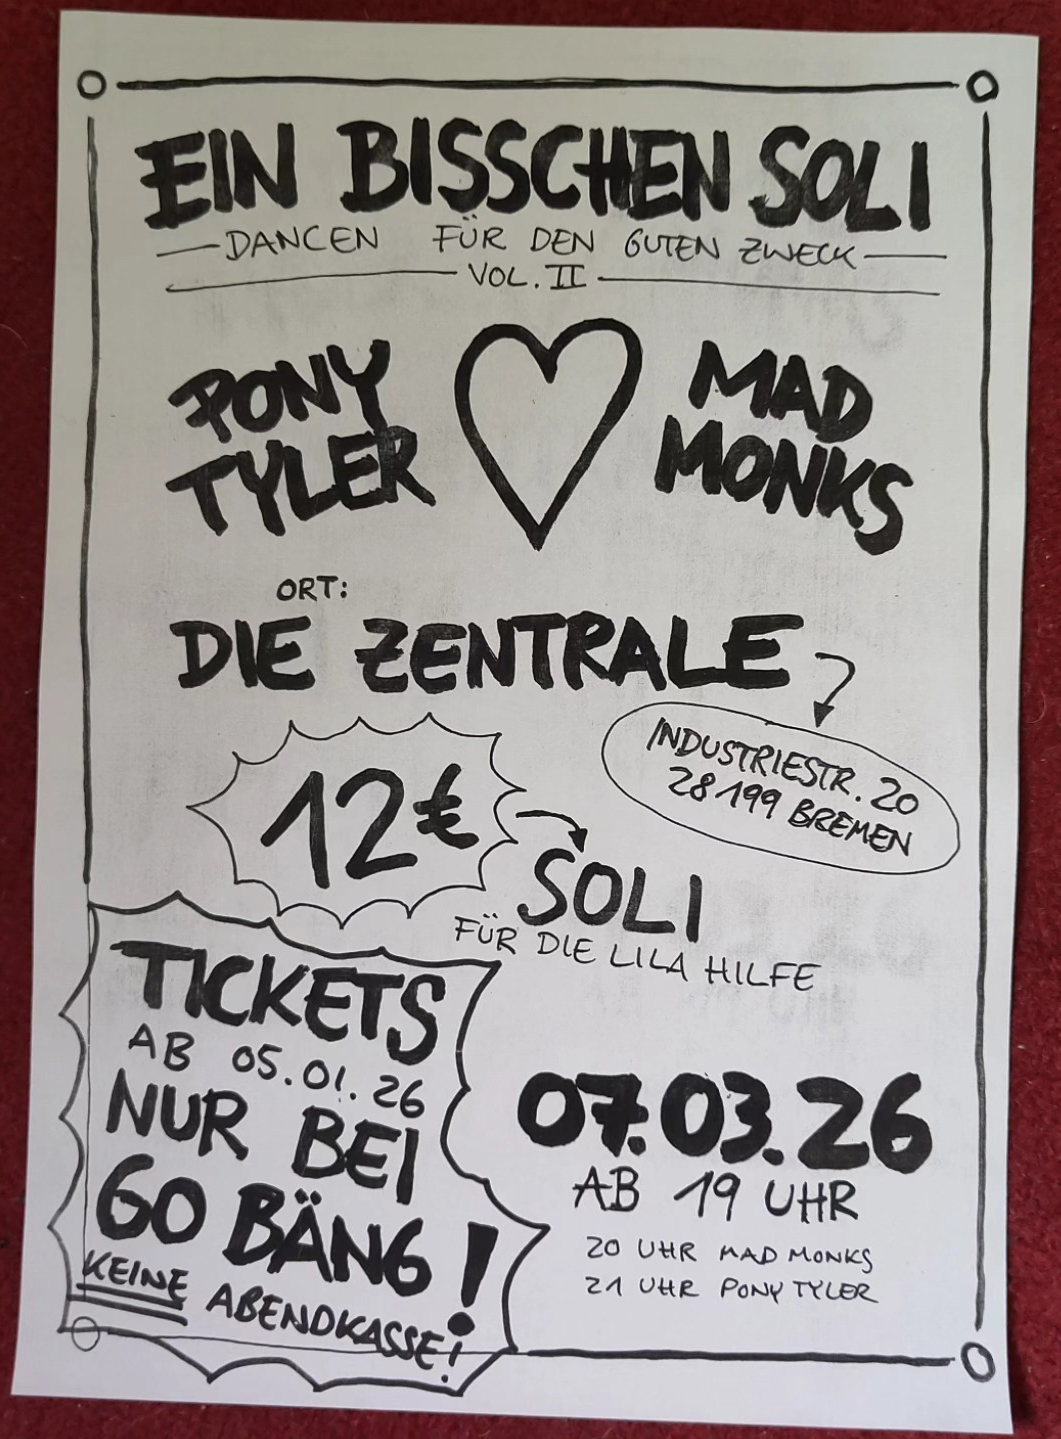 EIN BISSCHEN SOLI
DANCEN FÜR DEN GUTEN ZWECK
VOL. II
PONY
TYLER
MAD
MONKS
ORT:
DIE ZENTRALE
INDUSTRIESTR. 20
28199 BREMEN
12€
SOLI
FÜR DIE LILA HILFE
TICKETS
AB 05.01.26
NUR BEI
GO BÄNG!
KEINE ABENDKASSE!
07.03.26
AB 19 UHR
20 UHR MAD MONKS
21 UHR PONY TYLER